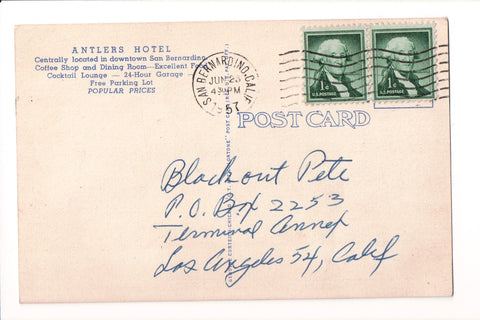 ANTLERS HOTEL
Centrally located in downtown San Bernardino
Coffee Shop and Dining Room—Excellent Food
Cocktail Lounge — 24-Hour Garage
Free Parking Lot
POPULAR PRICES
SAN BERNARDINO, CALIF.
JUN 26
4 30 PM
1957
1¢
U.S. POSTAGE
1¢
U.S. POSTAGE
POST CARD
Blackout Pete
P.O. Box 2253
Terminal Annex
Los Angeles 54, Calif